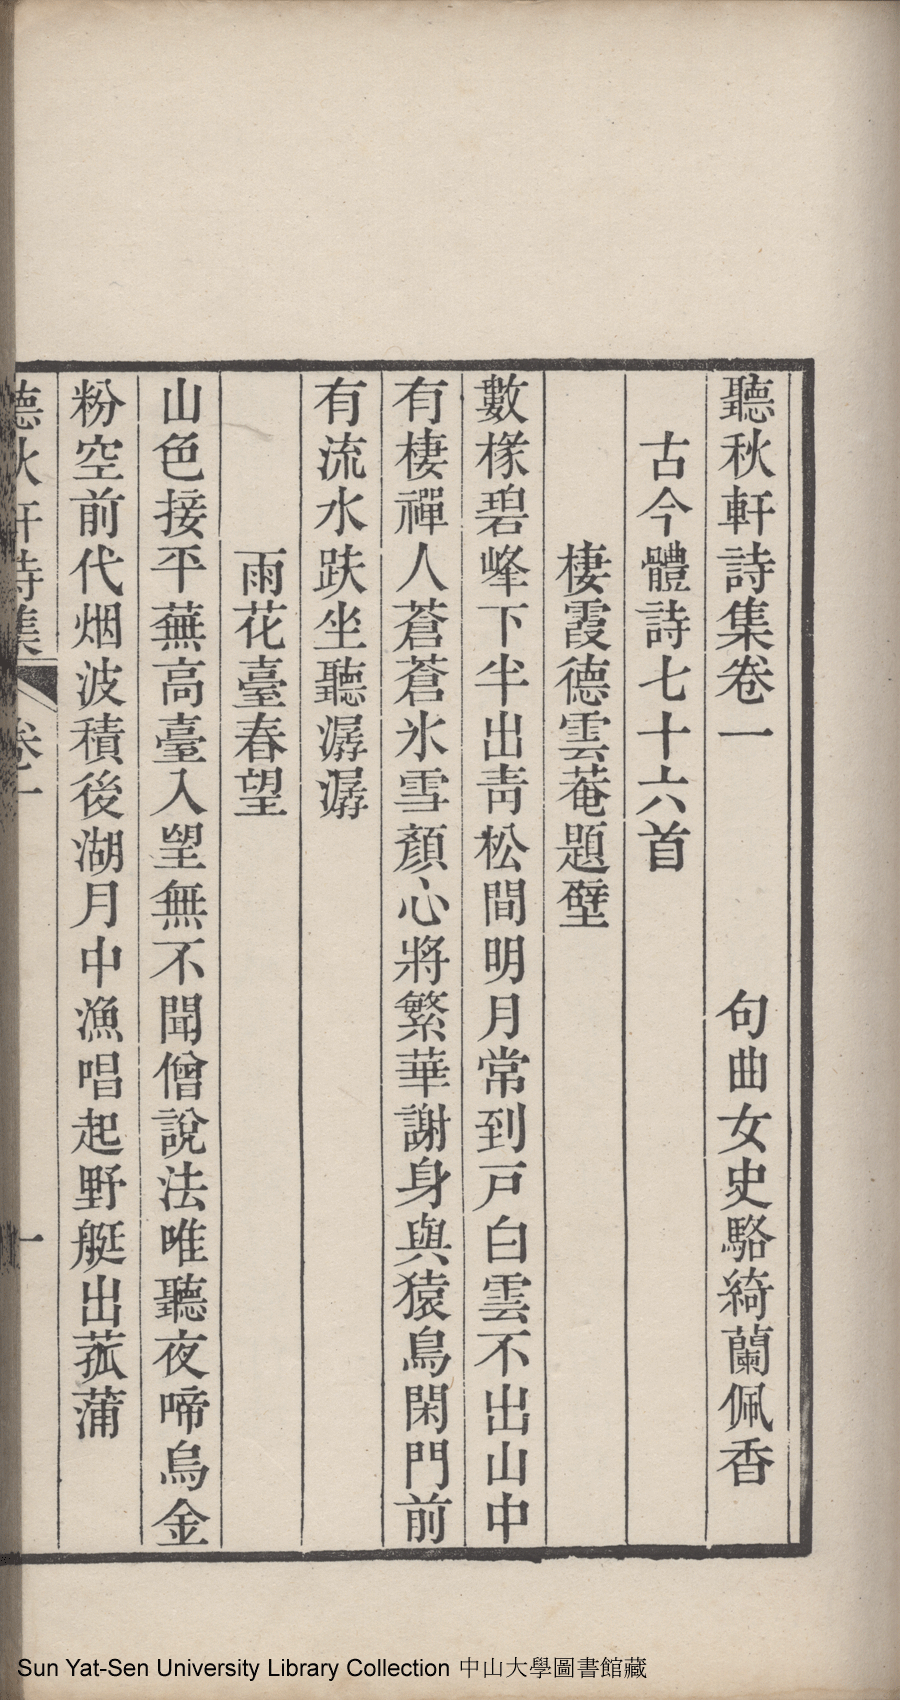 聽秋軒詩集卷一　　　　句曲女史駱綺蘭佩香
古今體詩七十六首
棲霞德雲菴題壁
數椽碧峰下半出靑松間明月常到戸白雲不出山中
有棲禪人蒼蒼氷雪顏心將繁華謝身與猿鳥閑門前
有流水趺坐聽潺潺
雨花臺春望
山色接平蕪高臺入望無不聞僧說法唯聽夜啼烏金
粉空前代烟波積後湖月中漁唱起野艇出菰蒲
聽秋軒詩集　卷一　一
Sun Yat-Sen University Library Collection 中山大學圖書館藏